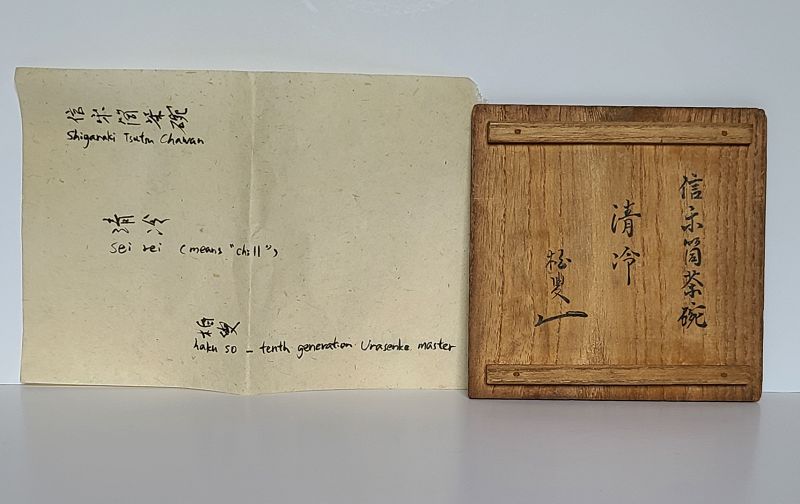 信楽筒茶碗
Shigaraki Tsutsu Chawan
清冷
Sei rei (means "chill")
柏叟
haku so – tenth generation Urasenke master
信楽筒茶碗
清冷
柏叟